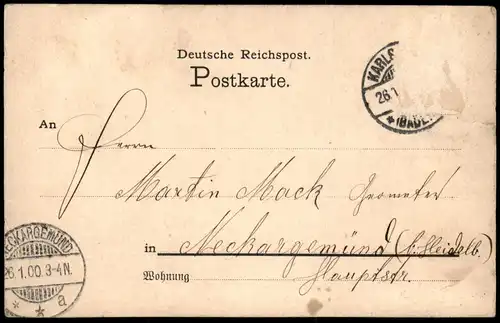 Deutsche Reichspost.
Postkarte.
KARLS
26.1
*(BADE
An
Herrn
Martin Mack Geometer
in Neckargemünd (b. Heidelb.)
Wohnung Hauptstr.
NECKARGEMÜND
26.1.00.3-4N.
* * a